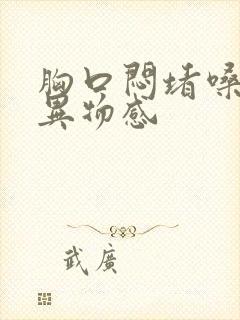 胸口悶堵嗓
異物感
武廣